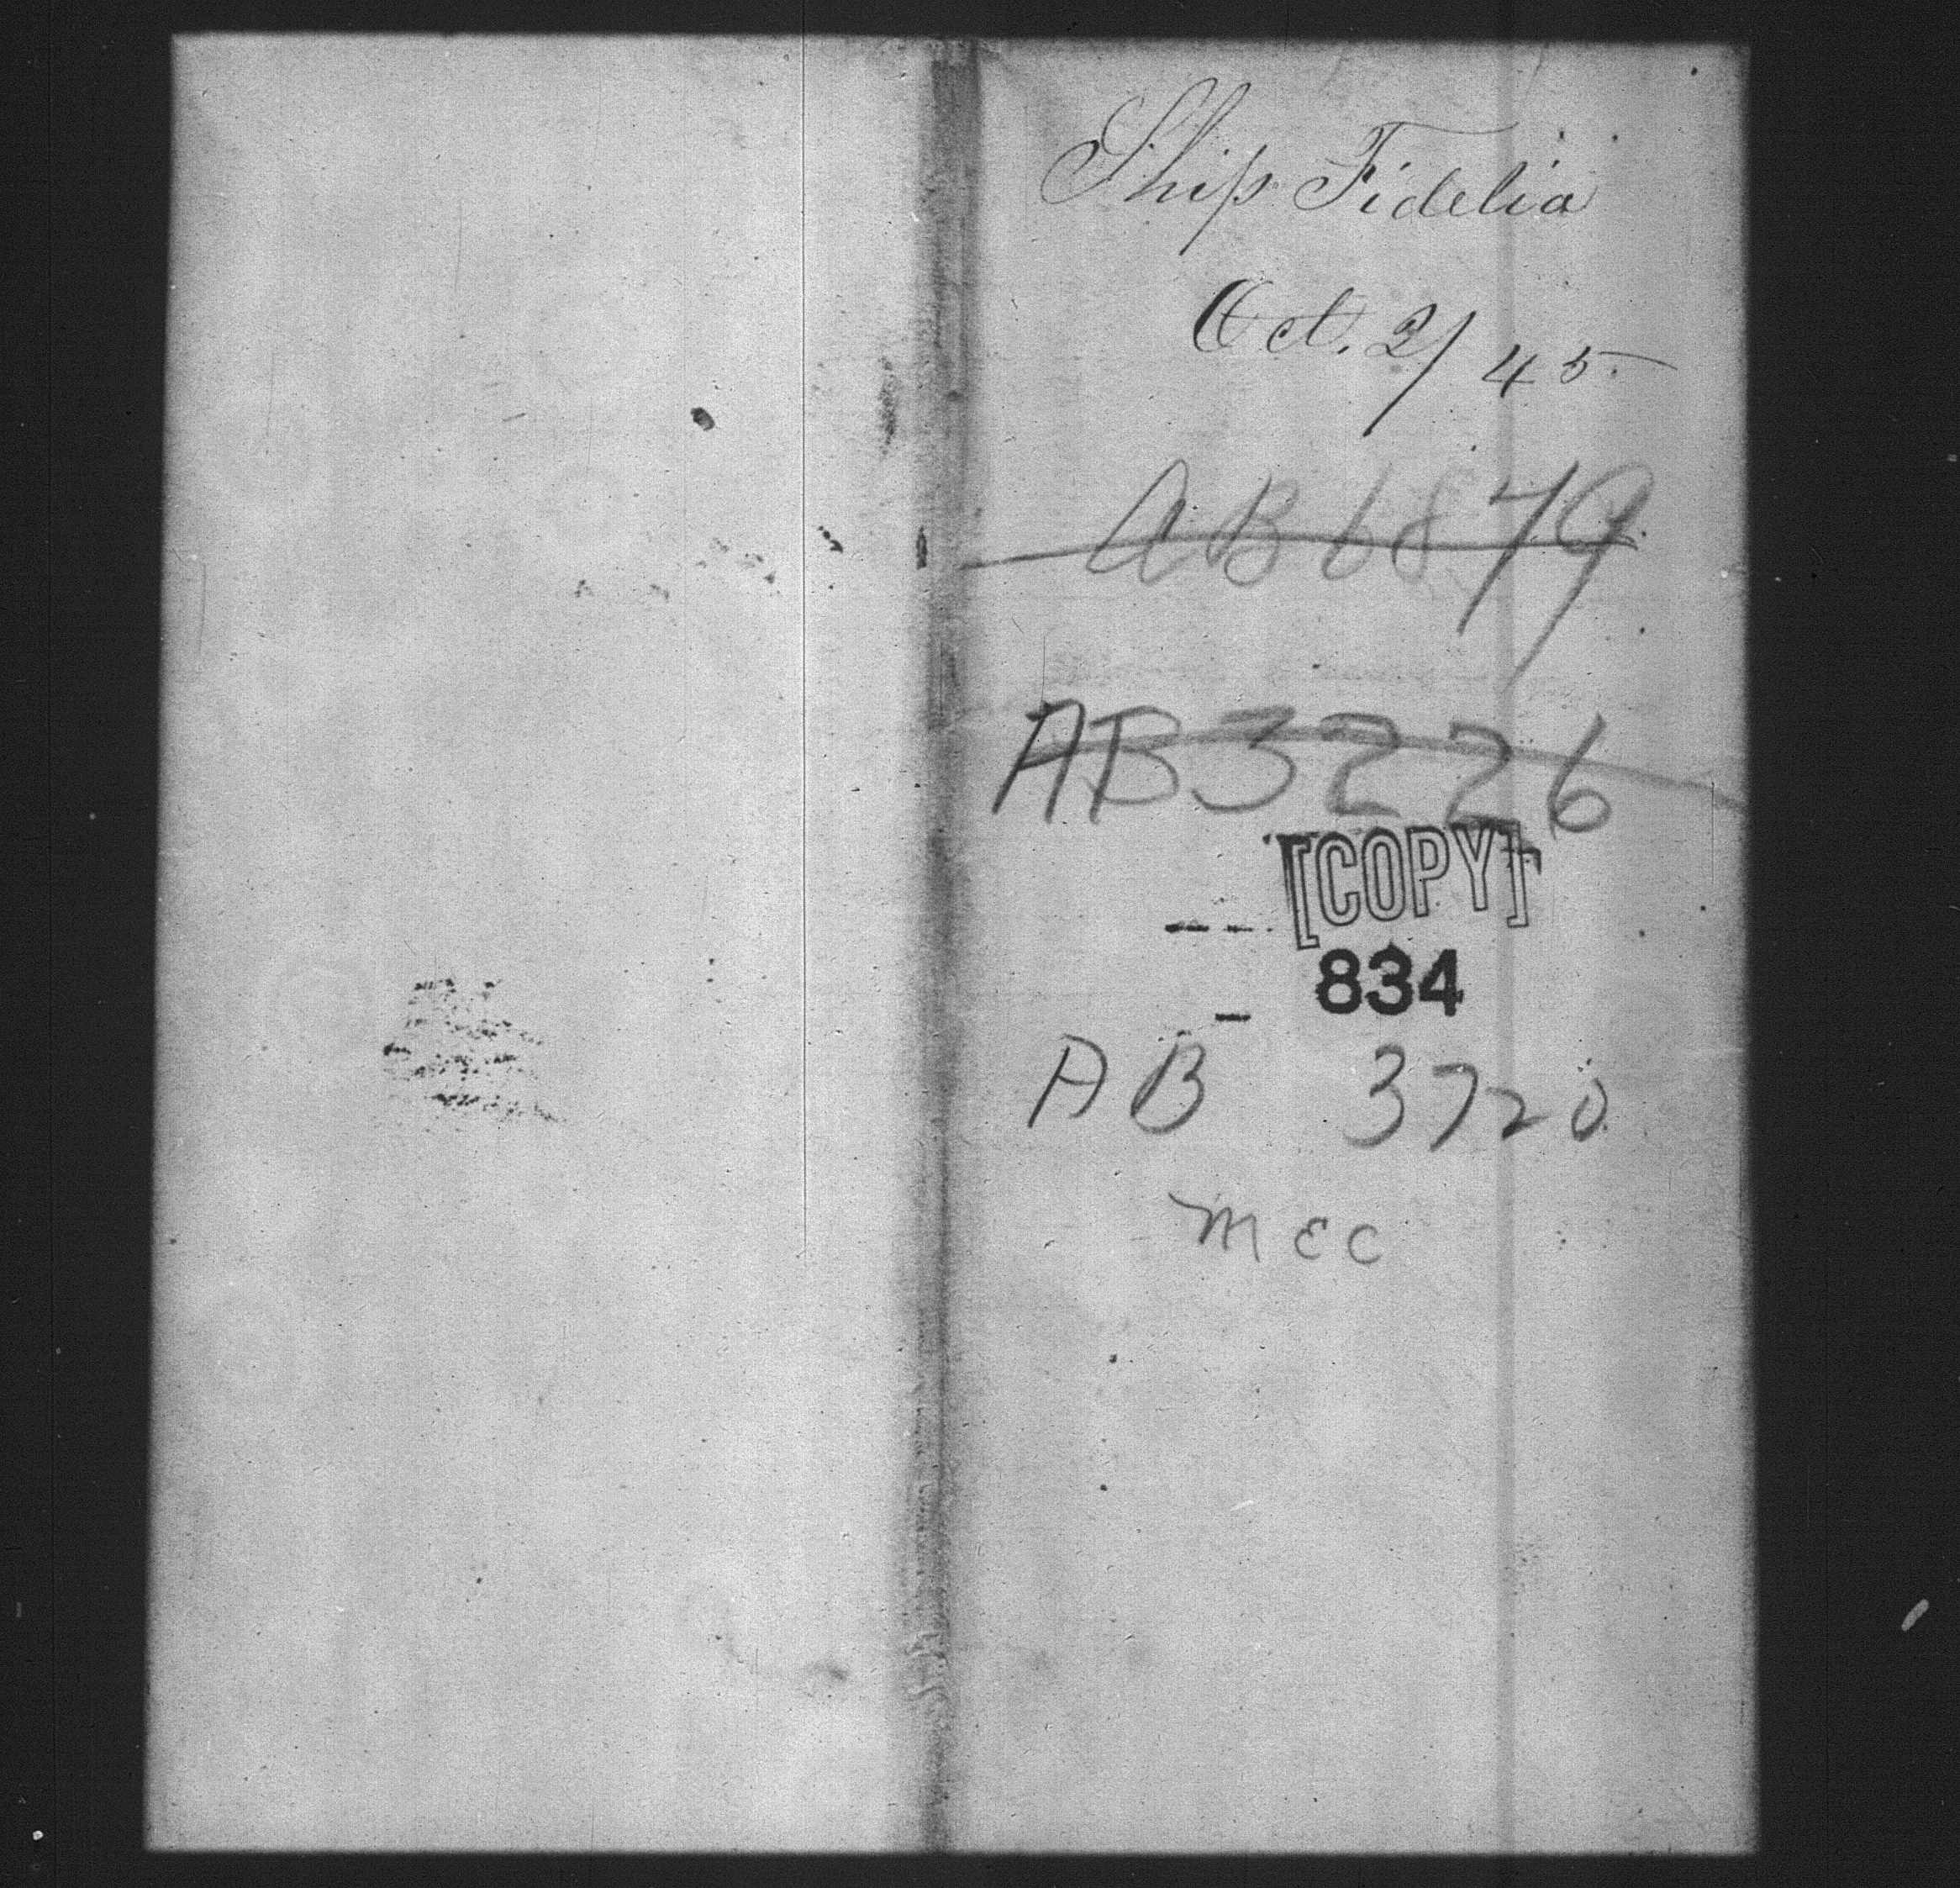 Ship Fidelia
Oct. 2/45.
AB 6879
AB3226
[COPY]
834
AB 3720
mec